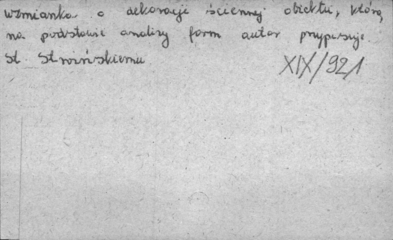 wzmianka o dekoracji ściennej obiektu, którą
na podstawie analizy form autor przypisuje
St. Stroińskiemu
XIX/921